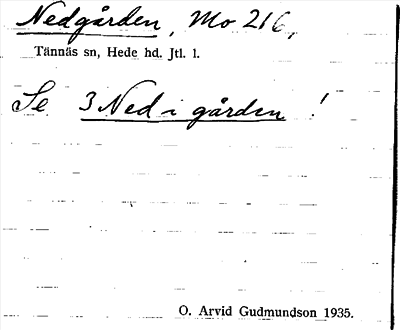 Nedgården, Mo 216,
Tännäs sn, Hede hd. Jtl. l.
Se 3 Ned i gården!
O. Arvid Gudmundson 1935.